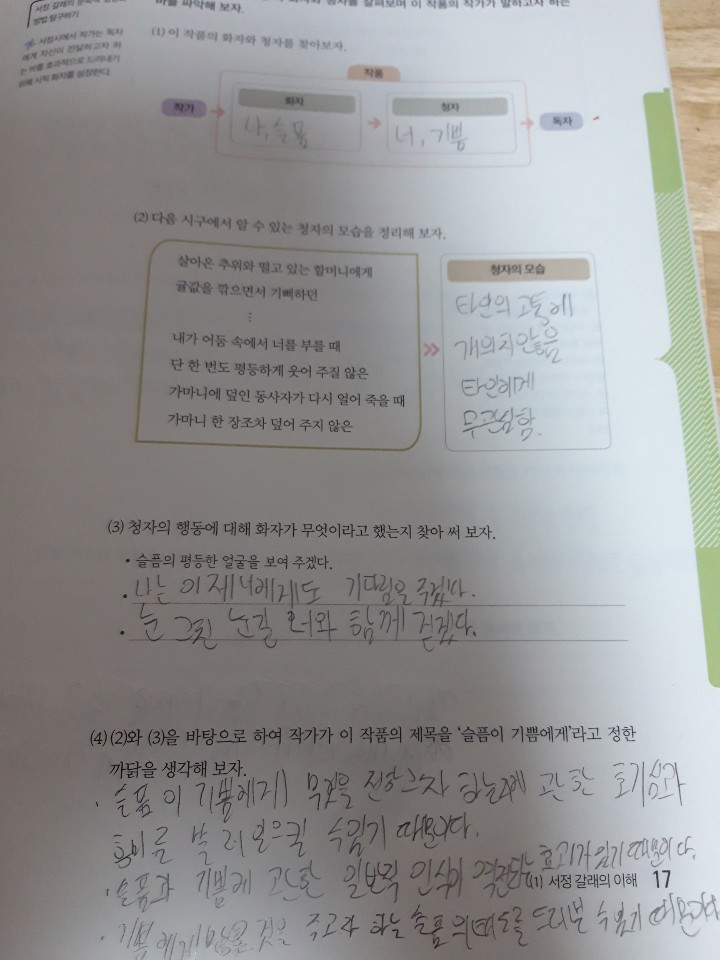 방법 탐구하기
서정시에서 작가는 독자
에게 자신이 전달하고자 하
는 바를 효과적으로 드러내기
위해 시적 화자를 설정한다.
바를 파악해 보자.
(1) 이 작품의 화자와 청자를 찾아보자.
작품
작가
화자
청자
독자
나, 슬픔
너, 기쁨
(2) 다음 시구에서 알 수 있는 청자의 모습을 정리해 보자.
살아온 추위와 떨고 있는 할머니에게
귤값을 깎으면서 기뻐하던
⋮
내가 어둠 속에서 너를 부를 때
단 한 번도 평등하게 웃어 주질 않은
가마니에 덮인 동사자가 다시 얼어 죽을 때
가마니 한 장조차 덮어 주지 않은
청자의 모습
타인의 고통에
개의치 않음
타인에게
무관심함.
(3) 청자의 행동에 대해 화자가 무엇이라고 했는지 찾아 써 보자.
• 슬픔의 평등한 얼굴을 보여 주겠다.
• 나는 이제 너에게도 기다림을 주겠다.
• 눈 그친 눈길 너와 함께 걷겠다.
(4) (2)와 (3)을 바탕으로 하여 작가가 이 작품의 제목을 '슬픔이 기쁨에게'라고 정한
까닭을 생각해 보자.
• 슬픔이 기쁨에게 무엇을 관한 호기심과
흥미를 불러일으킬 수 있기 때문이다.
• 슬픔과 기쁨에 관한 일반적 인식이 역전되는 효과가 있기 때문이다.
(1) 서정 갈래의 이해 17
• 기쁨에게 것을 주고자 하는 슬픔의 태도를 드러낼 수 있기 때문이다